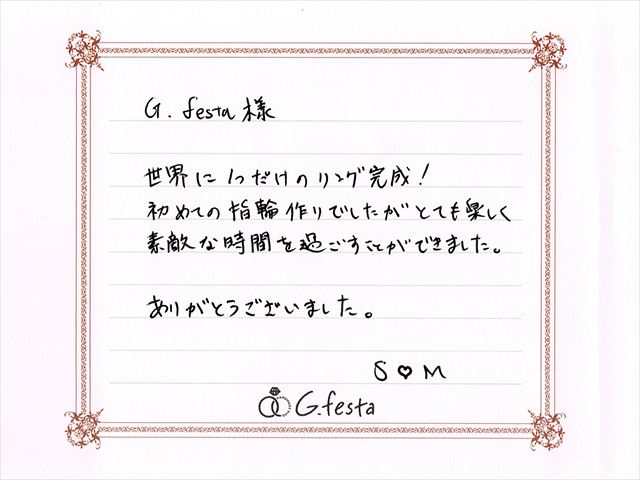 G. festa 様
世界に1つだけのリング完成!
初めての指輪作りでしたがとても楽しく
素敵な時間を過ごすことができました。
ありがとうございました。
S♥M
G.festa